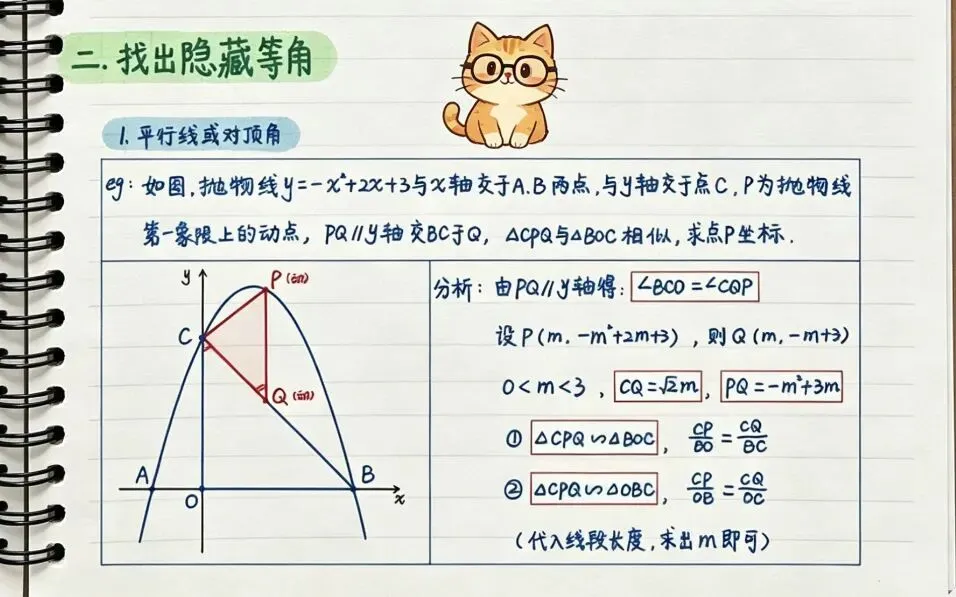 二. 找出隐藏等角
1. 平行线或对顶角
eg: 如图, 抛物线y=-x²+2x+3与x轴交于A.B两点, 与y轴交于点C, P为抛物线
第一象限上的动点, PQ∥y轴交BC于Q, △CPQ与△BOC相似, 求点P坐标.
y
P (动)
C
Q (动)
A
O
B
x
分析: 由PQ∥y轴得: ∠BCO=∠CQP
设P(m, -m²+2m+3), 则Q(m, -m+3)
0<m<3, CQ=√2m, PQ=-m²+3m
① △CPQ∽△BOC, CP/BO=CQ/BC
② △CPQ∽△OBC, CP/OB=CQ/OC
(代入线段长度, 求出m即可)